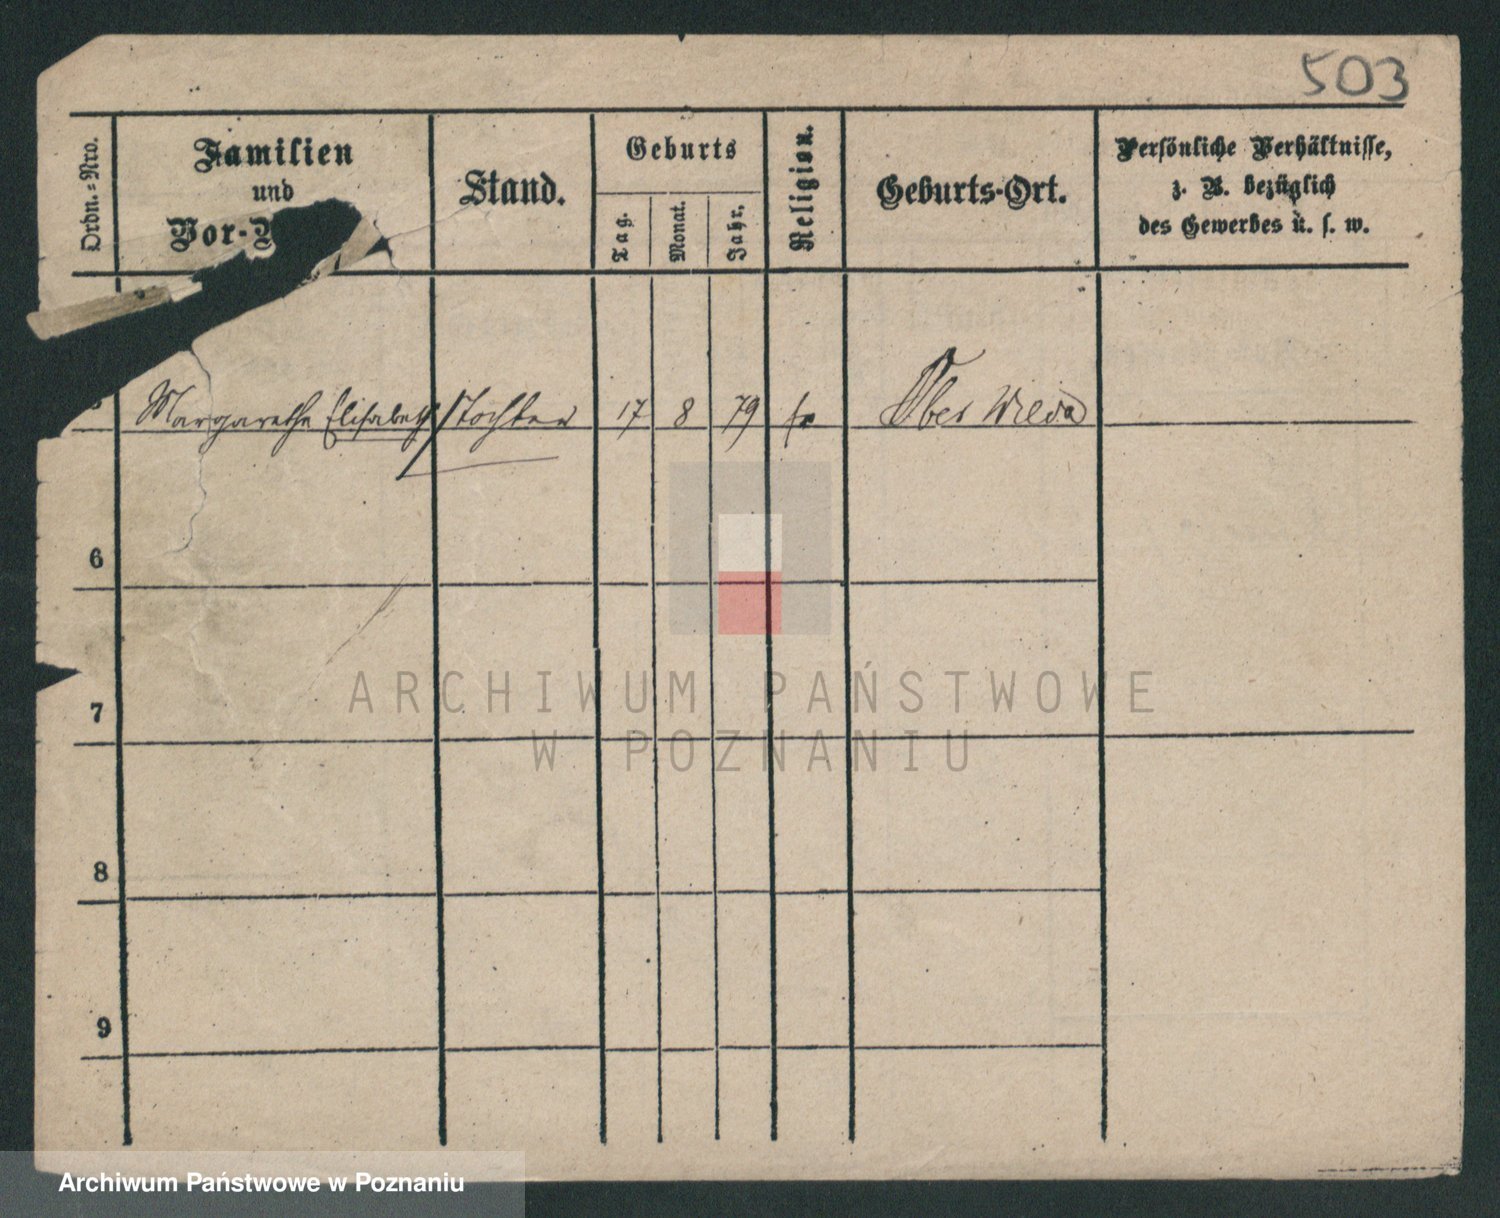 503
Ordn.=Nro.
Familien
und
Vor-
Stand.
Geburts
Tag.
Monat.
Jahr.
Religion.
Geburts-Ort.
Persönliche Verhältnisse,
z. B. bezüglich
des Gewerbes u. s. w.
Margarethe Elisabeth Tochter 17 8 79 Ober Wilda
6
7
8
9
ARCHIWUM PAŃSTWOWE
W POZNANIU
Archiwum Państwowe w Poznaniu